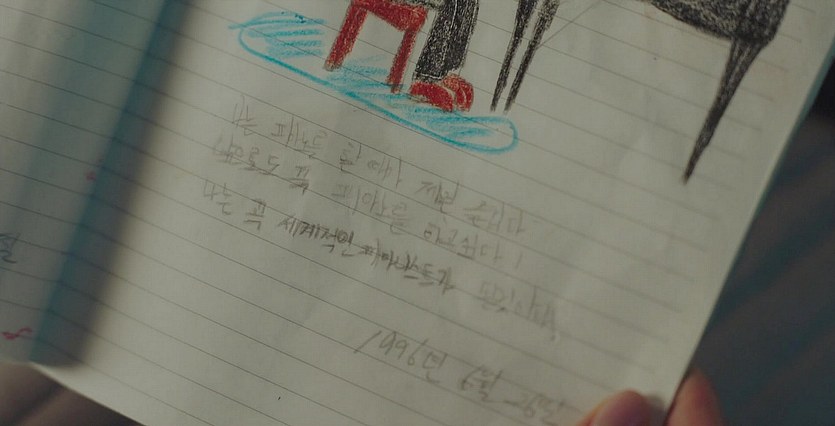 나는 피아노를 칠 때가 제일 즐겁다
앞으로도 꼭 피아노를 하고싶다!
나는 꼭 세계적인 피아니스트가
1996년 6월 26일